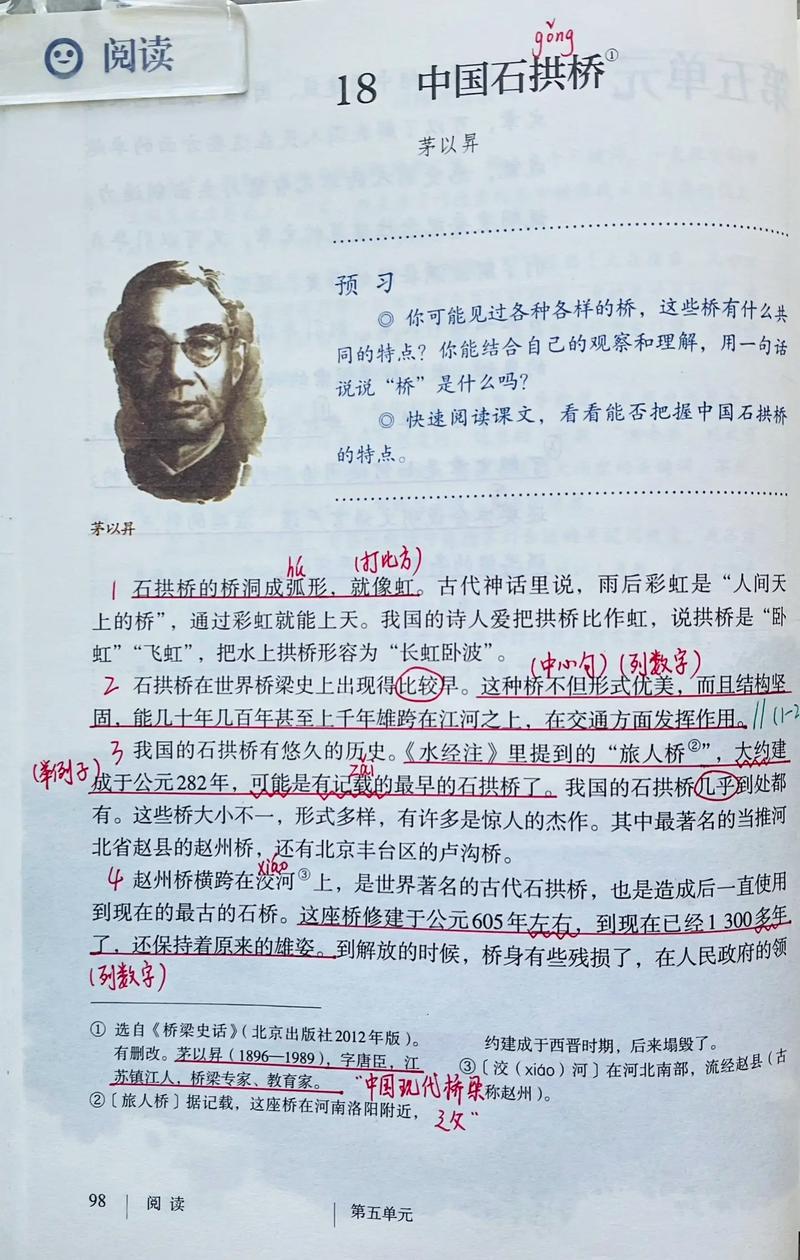 阅读
gǒng
18 中国石拱桥①
茅以昇
预 习
◎ 你可能见过各种各样的桥，这些桥有什么共
同的特点？你能结合自己的观察和理解，用一句话
说说“桥”是什么吗？
◎ 快速阅读课文，看看能否把握中国石拱桥
的特点。
茅以昇
hú （打比方）
1 石拱桥的桥洞成弧形，就像虹。古代神话里说，雨后彩虹是“人间天
上的桥”，通过彩虹就能上天。我国的诗人爱把拱桥比作虹，说拱桥是“卧
虹”“飞虹”，把水上拱桥形容为“长虹卧波”。
（中心句）（列数字）
2 石拱桥在世界桥梁史上出现得比较早。这种桥不但形式优美，而且结构坚
固，能几十年几百年甚至上千年雄跨在江河之上，在交通方面发挥作用。// (1-2
3 我国的石拱桥有悠久的历史。《水经注》里提到的“旅人桥②”，大约建
（举例子） zǎi
成于公元282年，可能是有记载的最早的石拱桥了。我国的石拱桥几乎到处都
有。这些桥大小不一，形式多样，有许多是惊人的杰作。其中最著名的当推河
北省赵县的赵州桥，还有北京丰台区的卢沟桥。
xiáo
4 赵州桥横跨在洨河③上，是世界著名的古代石拱桥，也是造成后一直使用
到现在的最古的石桥。这座桥修建于公元605年左右，到现在已经1 300多年
了，还保持着原来的雄姿。到解放的时候，桥身有些残损了，在人民政府的领
（列数字）
① 选自《桥梁史话》（北京出版社2012年版）。
有删改。茅以昇（1896—1989），字唐臣，江
苏镇江人，桥梁专家、教育家。
“中国现代桥梁
之父”
② 〔旅人桥〕据记载，这座桥在河南洛阳附近，
约建成于西晋时期，后来塌毁了。
③ 〔洨（xiáo）河〕在河北南部，流经赵县（古
称赵州）。
98 阅读
第五单元